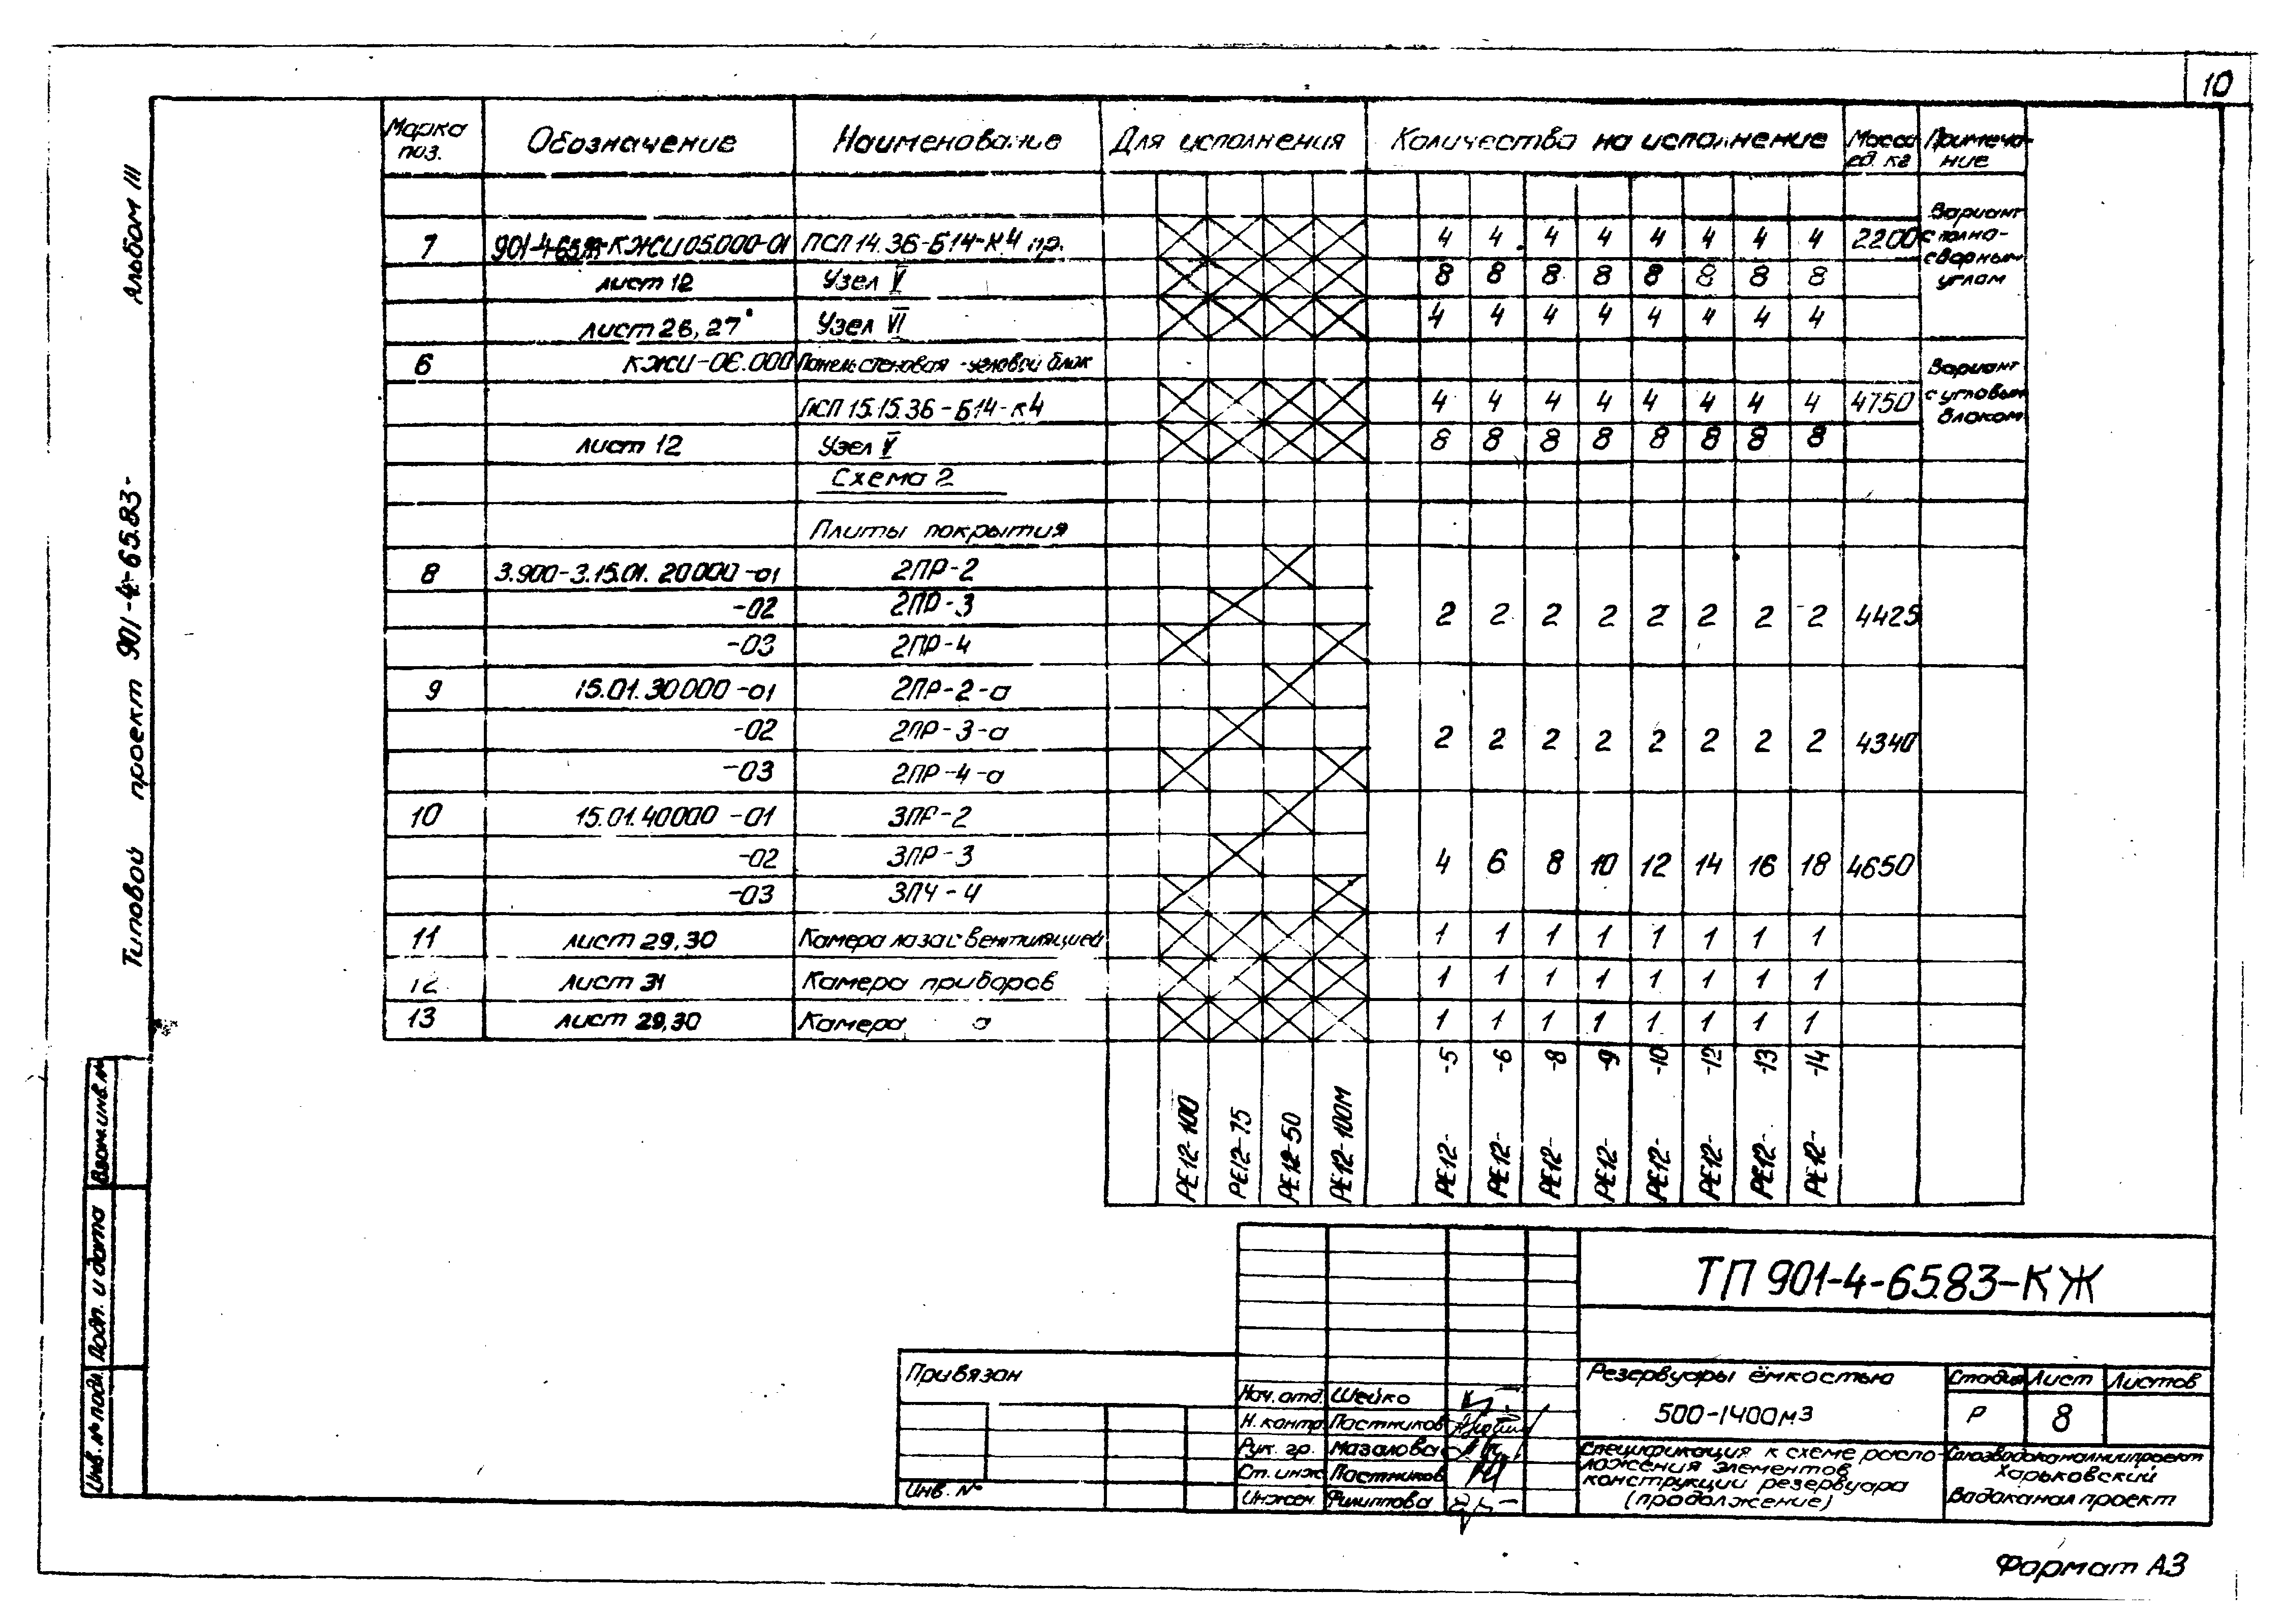 10
Альбом III
Типовой проект 901-4-65.83-
Марка поз. Обозначение Наименование Для исполнения Количество на исполнение Масса ед. кг Примечание
7 901-4-65.83-КЖИ 05.000-01 ПСП 14.36-Б14-К4 пр. 4 4 4 4 4 4 4 4 2200 Вариант с полно-сварным углам
лист 12 Узел V 8 8 8 8 8 8 8 8
лист 26, 27 Узел VI 4 4 4 4 4 4 4 4
6 КЖИ-06.000 Панель стеновая -угловой блок
ПСП 15.15.36-Б14-К4 4 4 4 4 4 4 4 4 4750 Вариант с угловым блоком
лист 12 Узел V 8 8 8 8 8 8 8 8
Схема 2
Плиты покрытия
8 3.900-3.15.01. 20000 -01 2ПР-2
-02 2ПР-3 2 2 2 2 2 2 2 2 4425
-03 2ПР-4
9 15.01.30000 -01 2ПР-2-а
-02 2ПР-3-а 2 2 2 2 2 2 2 2 4340
-03 2ПР-4-а
10 15.01.40000 -01 3ПР-2
-02 3ПР-3 4 6 8 10 12 14 16 18 4650
-03 3ПЧ-4
11 лист 29,30 Камера лаза с вентиляцией 1 1 1 1 1 1 1 1
12 лист 31 Камера приборов 1 1 1 1 1 1 1 1
13 лист 29,30 Камера а 1 1 1 1 1 1 1 1
РЕ12-100 РЕ12-75 РЕ12-50 РЕ12-100М РЕ12- -5 РЕ12- -6 РЕ12- -8 РЕ12- -9 РЕ12- -10 РЕ12- -12 РЕ12- -13 РЕ12- -14
Взам.инв.№
Подп. и дата
Инв.№ подл.
ТП 901-4-65.83-КЖ
Привязан
Инв. №
Нач. отд. Шейко
Н. контр. Постников
Рук. гр. Мазалова
Ст. инж Постников
Инжен. Филиппова
Резервуары ёмкостью
500-1400м3
Стадия Лист Листов
Р 8
Спецификация к схеме распо-
ложения элементов
конструкции резервуара
(продолжение)
Союзводоканалниипроект
Харьковский
Водоканалпроект
Формат А3